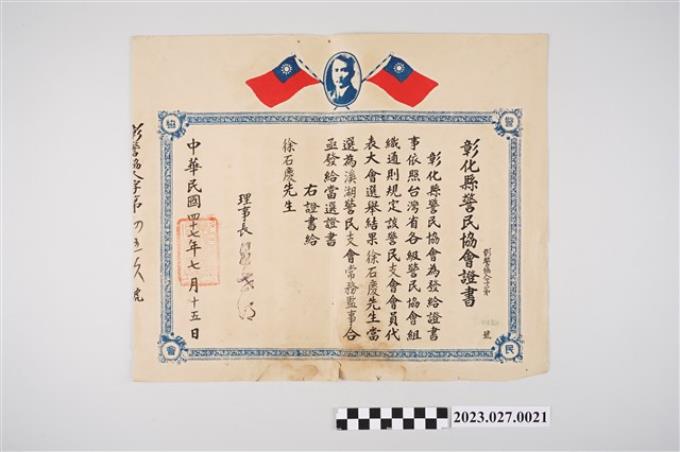 警民協會
彰化縣警民協會證書
彰警協人字第
號
彰化縣警民協會為發給證書
事依照台灣省各級警民協會組
織通則規定該警民支會會員代
表大會選舉結果徐石慶先生當
選為溪湖警民支會常務監事合
亟發給當選證書
右證書給
徐石慶先生
理事長
中華民國四十七年七月十五日
2023.027.0021